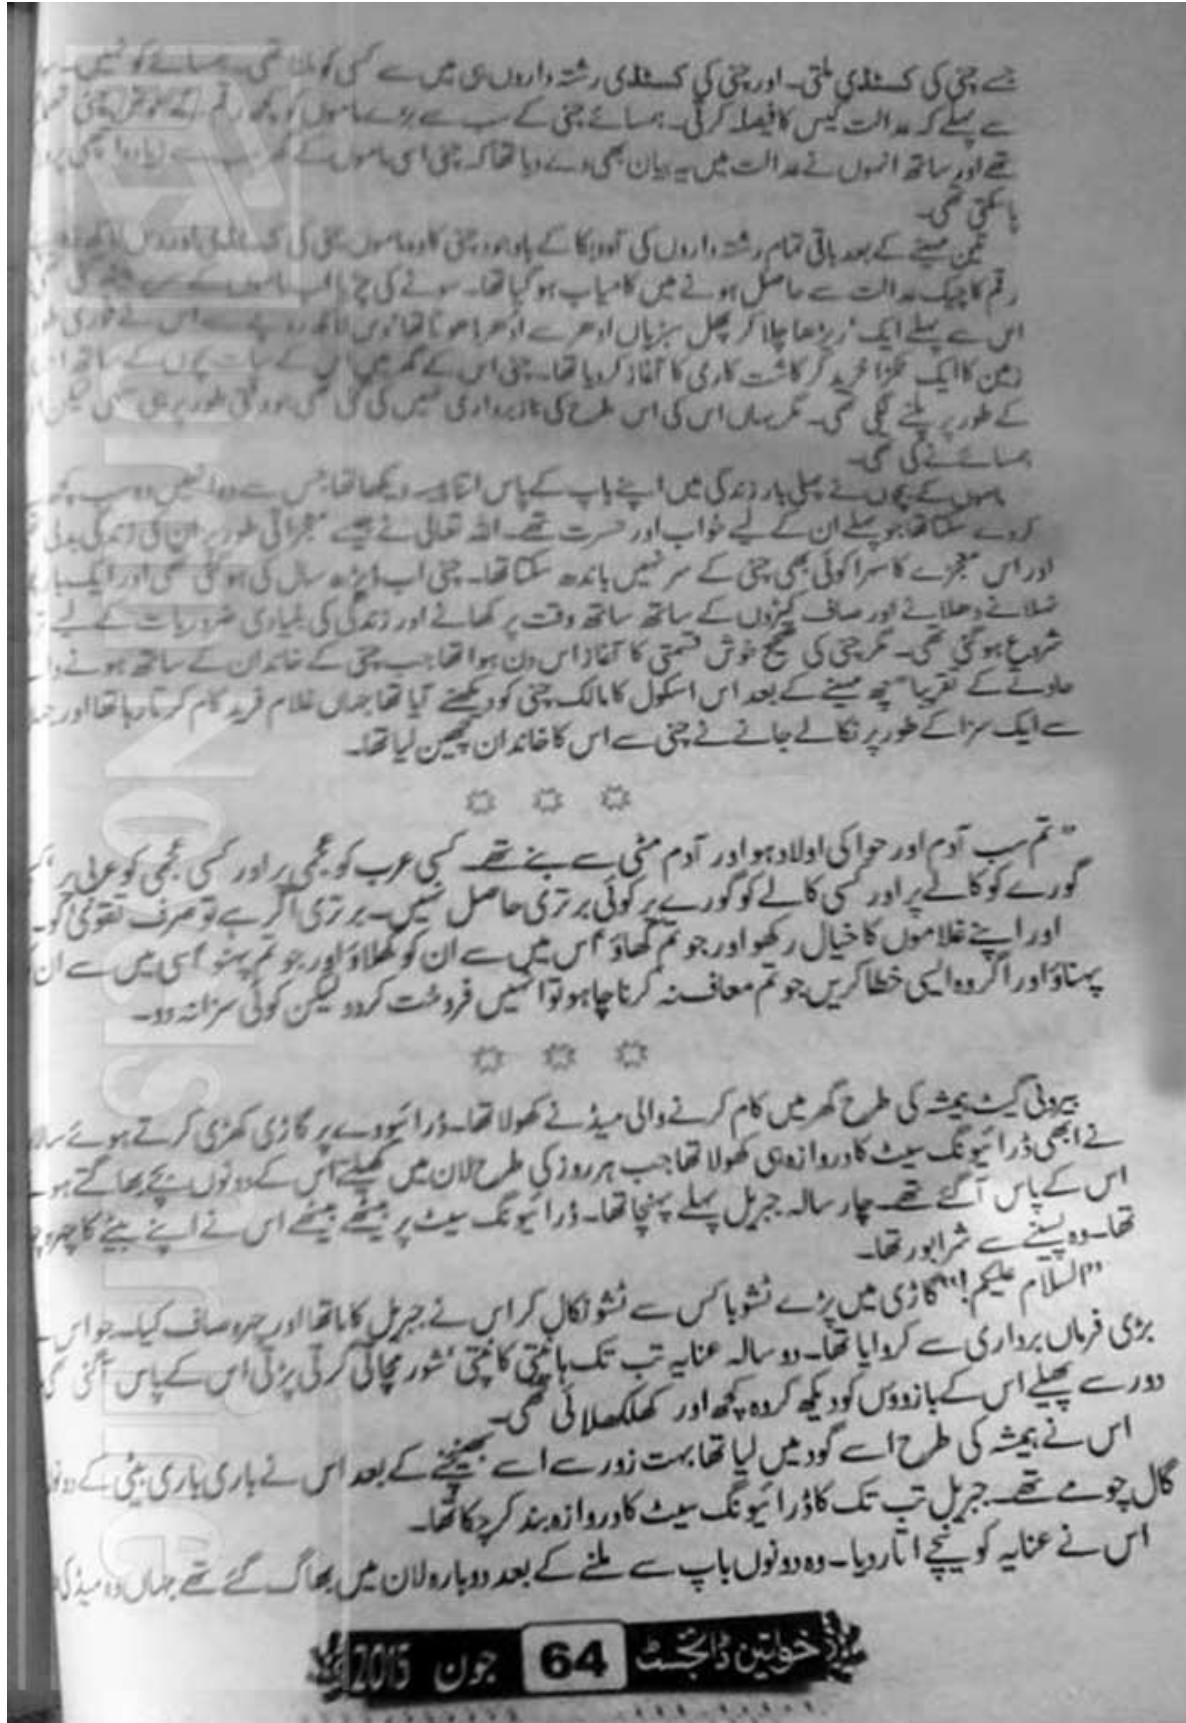 جسے چنی کی کسٹڈی ملتی۔ اور چنی کی کسٹڈی رشتہ داروں ہی میں سے کسی کو ملنا تھی ہمسائے کو نہیں۔
سے پہلے کہ عدالت کیس کا فیصلہ کرتی۔ ہمسائے چنی کے سب سے بڑے ماموں کو کچھ رقم
تھے اور ساتھ انہوں نے عدالت میں یہ بیان بھی دے دیا تھا کہ چنی اسی ماموں کے گھر سب سے زیادہ اچھی
پا سکتی تھی۔
تین مہینے کے بعد باقی تمام رشتہ داروں کی آہ و بکا کے باوجود چنی کا وہ ماموں چنی کی کسٹڈی اور دس لاکھ
رقم کا چیک عدالت سے حاصل ہونے میں کامیاب ہو گیا تھا۔ سونے کی چڑیا اب ماموں کے سر بیٹھ گئی
اس سے پہلے ایک ریڑھا چلا کر پھل سبزیاں ادھر سے ادھر ڈھوتا تھا دس لاکھ روپے سے اس نے فوری
زمین کا ایک ٹکڑا خرید کر کاشت کاری کا آغاز کر دیا تھا۔ چنی اس کے گھر میں اس کے سات بچوں کے ساتھ
کے طور پر پلنے لگی تھی۔ مگر یہاں اس کی اس طرح کی ناز برداری نہیں کی گئی تھی جو وقتی طور پر ہی سہی لیکن
ہمسائے نے کی تھی۔
ماموں کے بچوں نے پہلی بار زندگی میں اپنے باپ کے پاس اتنا پیسہ دیکھا تھا جس سے وہ انہیں وہ سب کچھ
کر دے سکتا تھا جو پہلے ان کے لیے خواب اور حسرت تھے۔ اللہ تعالیٰ نے جیسے معجزاتی طور پر ان کی زندگی بدلی
اور اس معجزے کا سہرا کوئی بھی چنی کے سر نہیں باندھ سکتا تھا۔ چنی اب ڈیڑھ سال کی ہو گئی تھی اور ایک بار
نہلانے دھلانے اور صاف کپڑوں کے ساتھ ساتھ وقت پر کھانے اور زندگی کی بنیادی ضروریات کے لیے
شروع ہو گئی تھی۔ مگر چنی کی صحیح خوش قسمتی کا آغاز اس دن ہوا تھا جب چنی کے خاندان کے ساتھ ہونے والے
حادثے کے تقریبا" چھ مہینے کے بعد اس اسکول کا مالک چنی کو دیکھنے آیا تھا جہاں غلام فرید کام کرتا رہا تھا اور
سے ایک سزا کے طور پر نکالے جانے نے چنی سے اس کا خاندان چھین لیا تھا۔
"تم سب آدم اور حوا کی اولاد ہو اور آدم مٹی سے بنے تھے۔ کسی عرب کو عجمی پر اور کسی عجمی کو عربی پر'
گورے کو کالے پر اور کسی کالے کو گورے پر کوئی برتری حاصل نہیں۔ برتری اگر ہے تو صرف تقویٰ کو۔
اور اپنے غلاموں کا خیال رکھو اور جو تم کھاؤ' اس میں سے ان کو کھلاؤ اور جو تم پہنو' اسی میں سے ان
پہناؤ اور اگر وہ ایسی خطا کریں جو تم معاف نہ کرنا چاہو تو انہیں فروخت کر دو لیکن کوئی سزا نہ دو۔
بیرونی گیٹ ہمیشہ کی طرح گھر میں کام کرنے والی میڈ نے کھولا تھا۔ ڈرائیو وے پر گاڑی کھڑی کرتے ہوئے
نے ابھی ڈرائیونگ سیٹ کا دروازہ ہی کھولا تھا جب ہر روز کی طرح لان میں کھیلتے اس کے دونوں بچے بھاگتے
اس کے پاس آ گئے تھے۔ چار سالہ جبریل پہلے پہنچا تھا۔ ڈرائیونگ سیٹ پر بیٹھے بیٹھے اس نے اپنے بیٹے کا چہرہ
تھا۔ وہ پسینے سے شرابور تھا۔
"السلام علیکم!" گاڑی میں پڑے ٹشو باکس سے ٹشو نکال کر اس نے جبریل کا ماتھا اور چہرہ صاف کیا۔ جو اس
بڑی فرماں برداری سے کروایا تھا۔ دو سالہ عنایہ تب تک ہانپتی کانپتی' شور مچاتی گرتی پڑتی اس کے پاس آ گئی
دور سے پھیلے اس کے بازوؤں کو دیکھ کر وہ کچھ اور کھلکھلائی تھی۔
اس نے ہمیشہ کی طرح اسے گود میں لیا تھا بہت زور سے اسے بھینچنے کے بعد اس نے باری باری بیٹی کے
گال چومے تھے۔ جبریل تب تک کا ڈرائیونگ سیٹ کا دروازہ بند کر چکا تھا۔
اس نے عنایہ کو نیچے اتار دیا۔ وہ دونوں باپ سے ملنے کے بعد دوبارہ لان میں بھاگ گئے تھے جہاں وہ میڈ کی
خواتین ڈائجسٹ 64 جون 2015